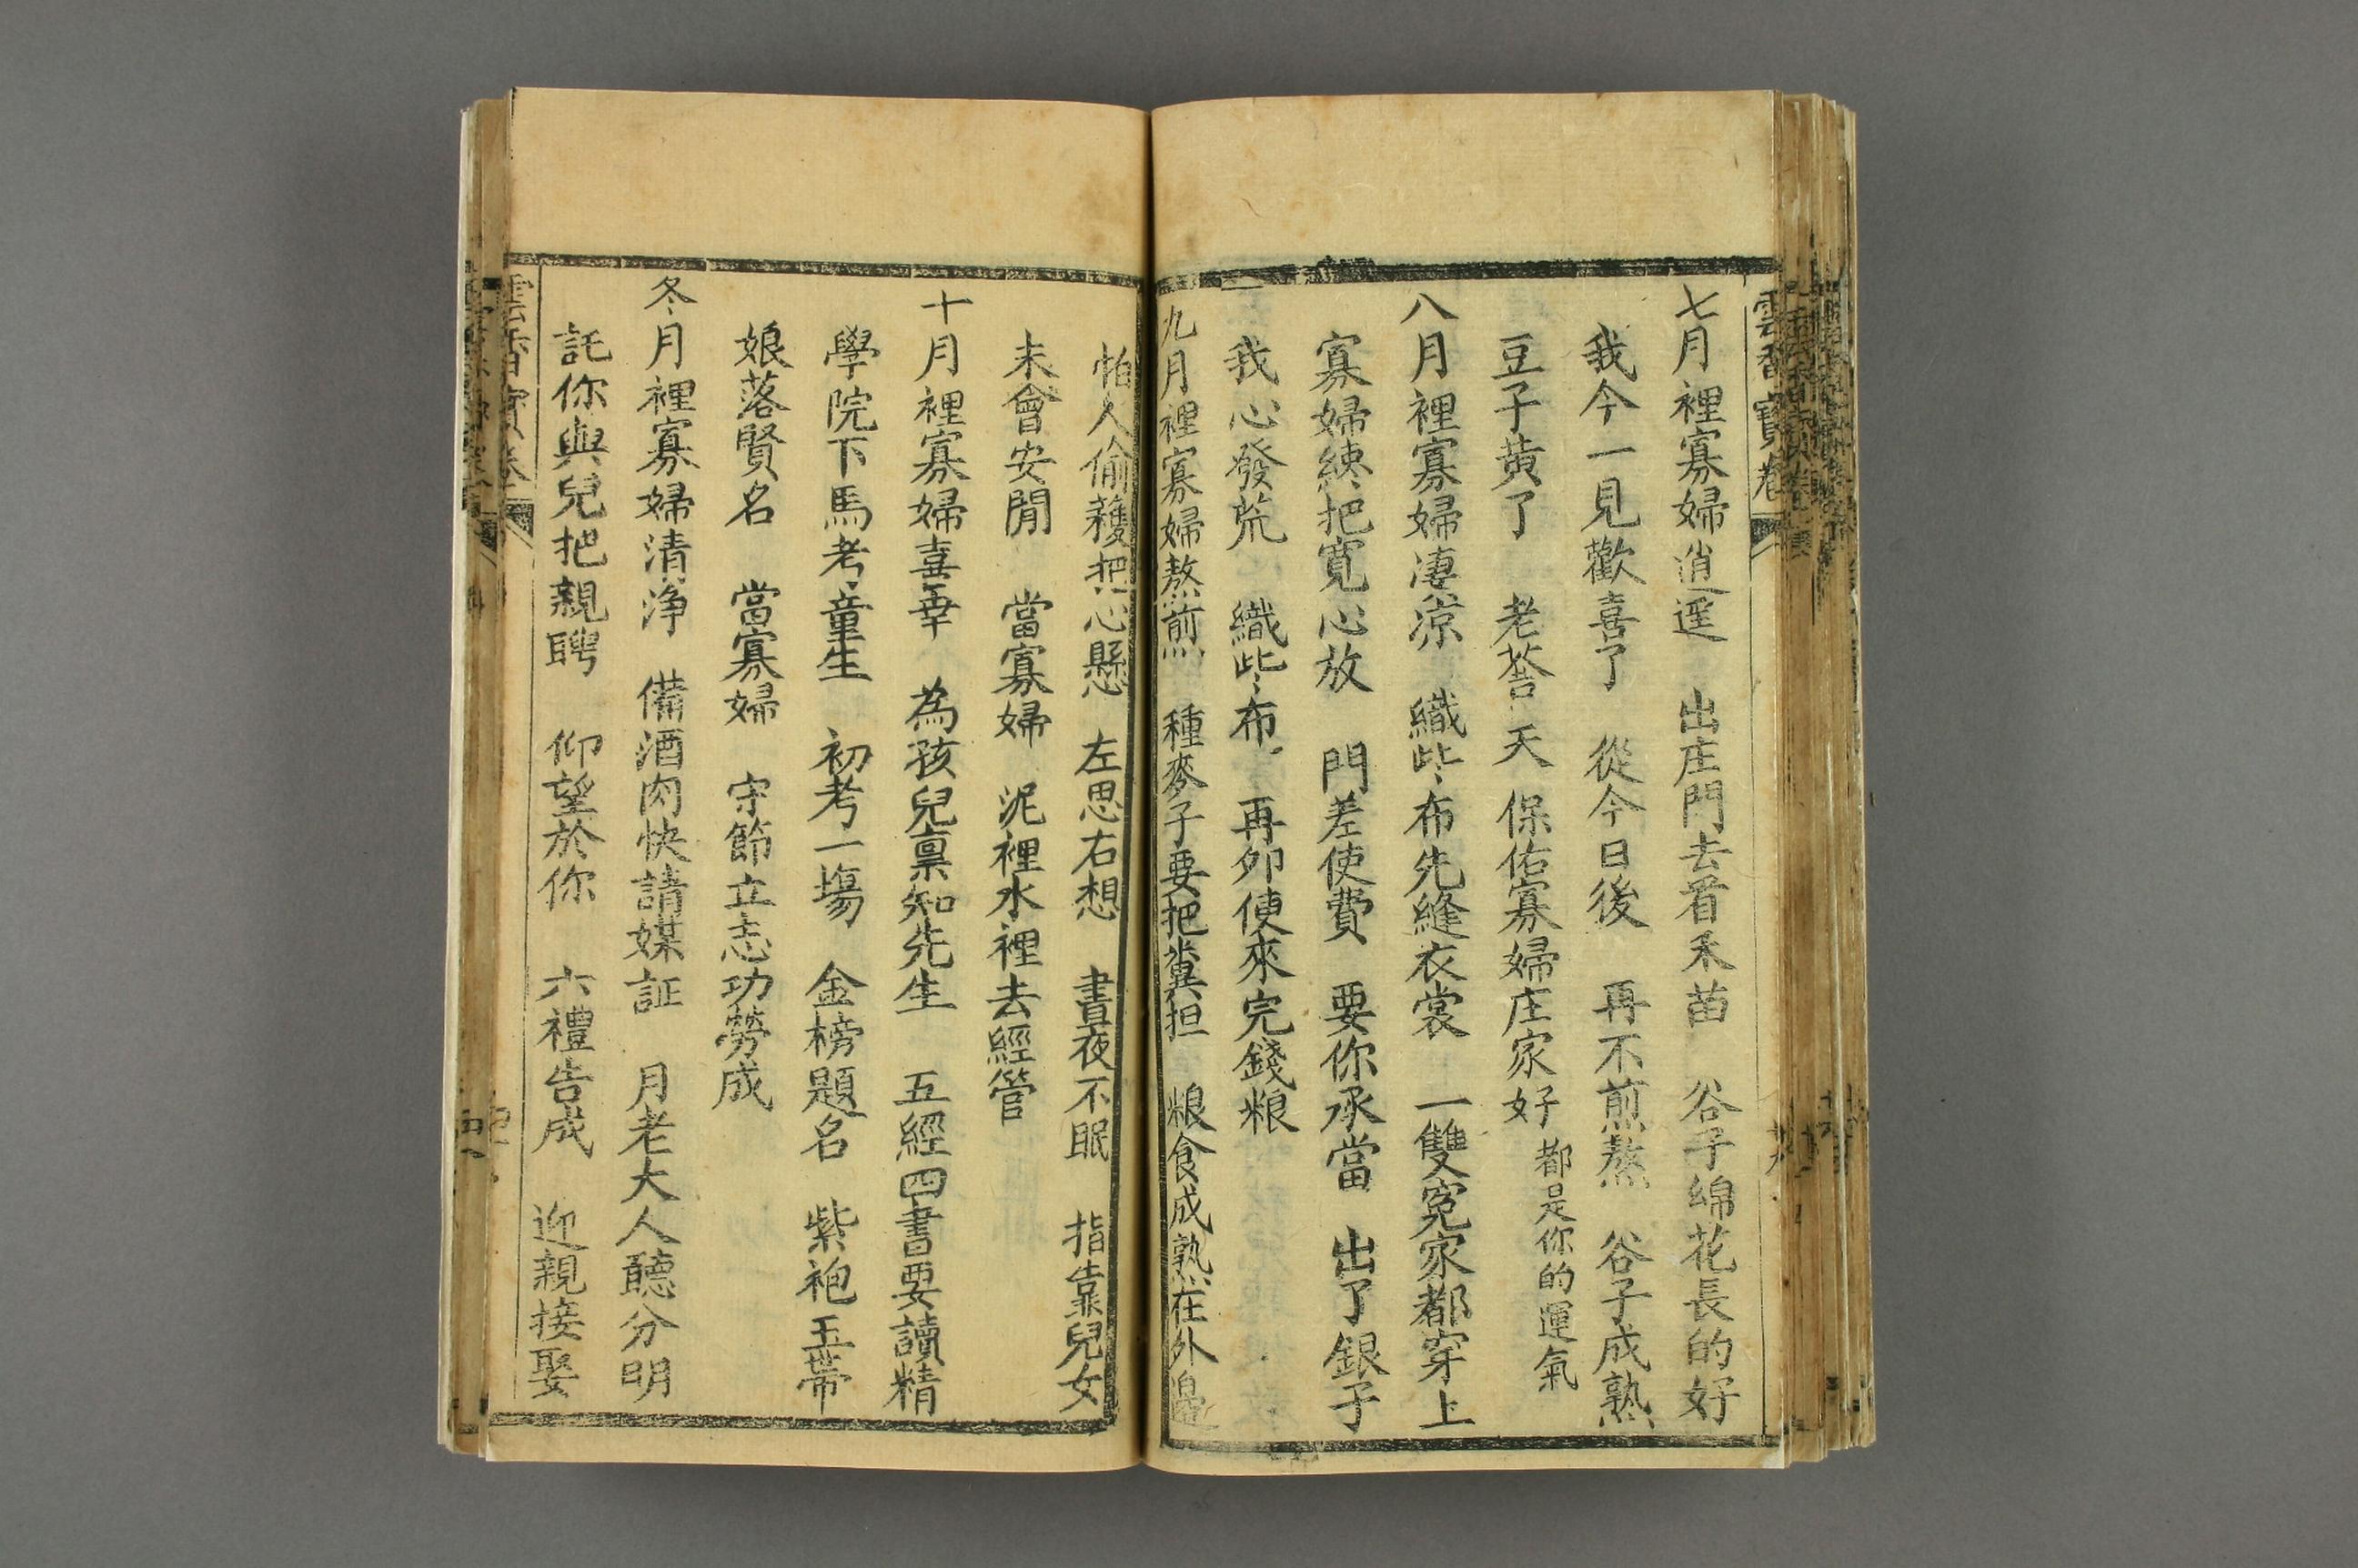 雲香寶卷
七月裡寡婦逍遥　出庄門去看禾苗　谷子綿花長的好
我今一見歡喜了　從今日後　再不煎熬　谷子成熟
豆子黄了　老荅天　保佑寡婦庄家好　都是你的運氣
八月裡寡婦凄凉　織些布先縫衣裳　一雙寃家都穿上
寡婦纔把寛心放　門差使費　要你承當　出了銀子
我心發荒　織些布　再卯便來完錢粮
九月裡寡婦熬煎　種麥子要把糞担　粮食成熟在外邉
怕人偷䅸把心懸　左思右想　晝夜不眠　指靠兒女
未會安閒　當寡婦　泥裡水裡去經管
十月裡寡婦喜幸　為孩兒禀知先生　五經四書要讀精
學院下馬考童生　初考一塲　金榜題名　紫袍玉帶
娘落賢名　當寡婦　守節立志功勞成
冬月裡寡婦清净　備酒肉快請媒証　月老大人聽分明
託你與兒把親聘　仰望於你　六禮告成　迎親接娶
雲香寶卷